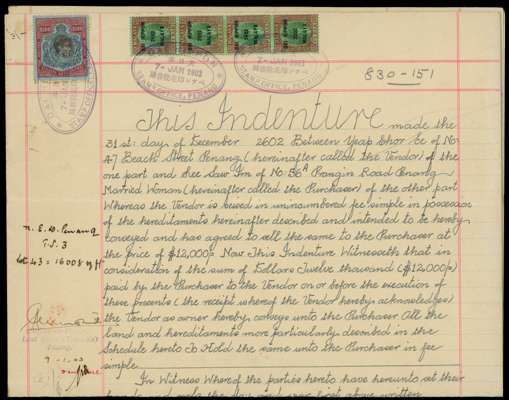 7-JAN 1903
STAMP OFFICE, PENANG
7-JAN 1903
STAMP OFFICE, PENANG
7-JAN
830-151
This Indenture made the
31st: day of December 2602 Between Yeap Chor Ee of No.
47 Beach Street Penang (hereinafter called the Vendor) of the
one part and Saw Im of No. 8E^A Prangin Road Penang
Married Woman (hereinafter called the Purchaser) of the other part
Whereas the Vendor is seised in unincumbered fee simple in possession
of the hereditaments hereinafter described and intended to be hereby
conveyed and has agreed to sell the same to the Purchaser at
the price of $12,000/- Now This Indenture Witnesseth that in
consideration of the sum of Dollars Twelve thousand ($12,000/-)
paid by the Purchaser to the Vendor on or before the execution of
these presents (the receipt whereof the Vendor hereby acknowledges)
the Vendor as owner hereby conveys unto the Purchaser All the
land and hereditaments more particularly described in the
Schedule hereto To Hold the same unto the Purchaser in fee
simple.
In Witness Whereof the parties hereto have hereunto set their
hands and seals the day and year first above written
T.S. 3
Lot 43 = 16008